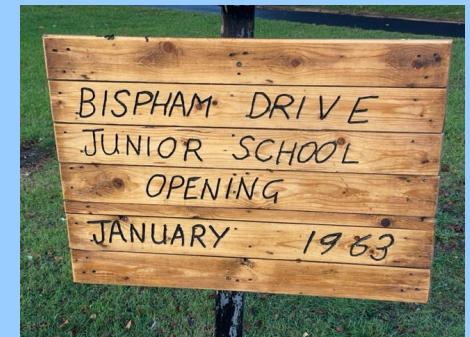 BISPHAM DRIVE
JUNIOR SCHOOL
OPENING
JANUARY 1963